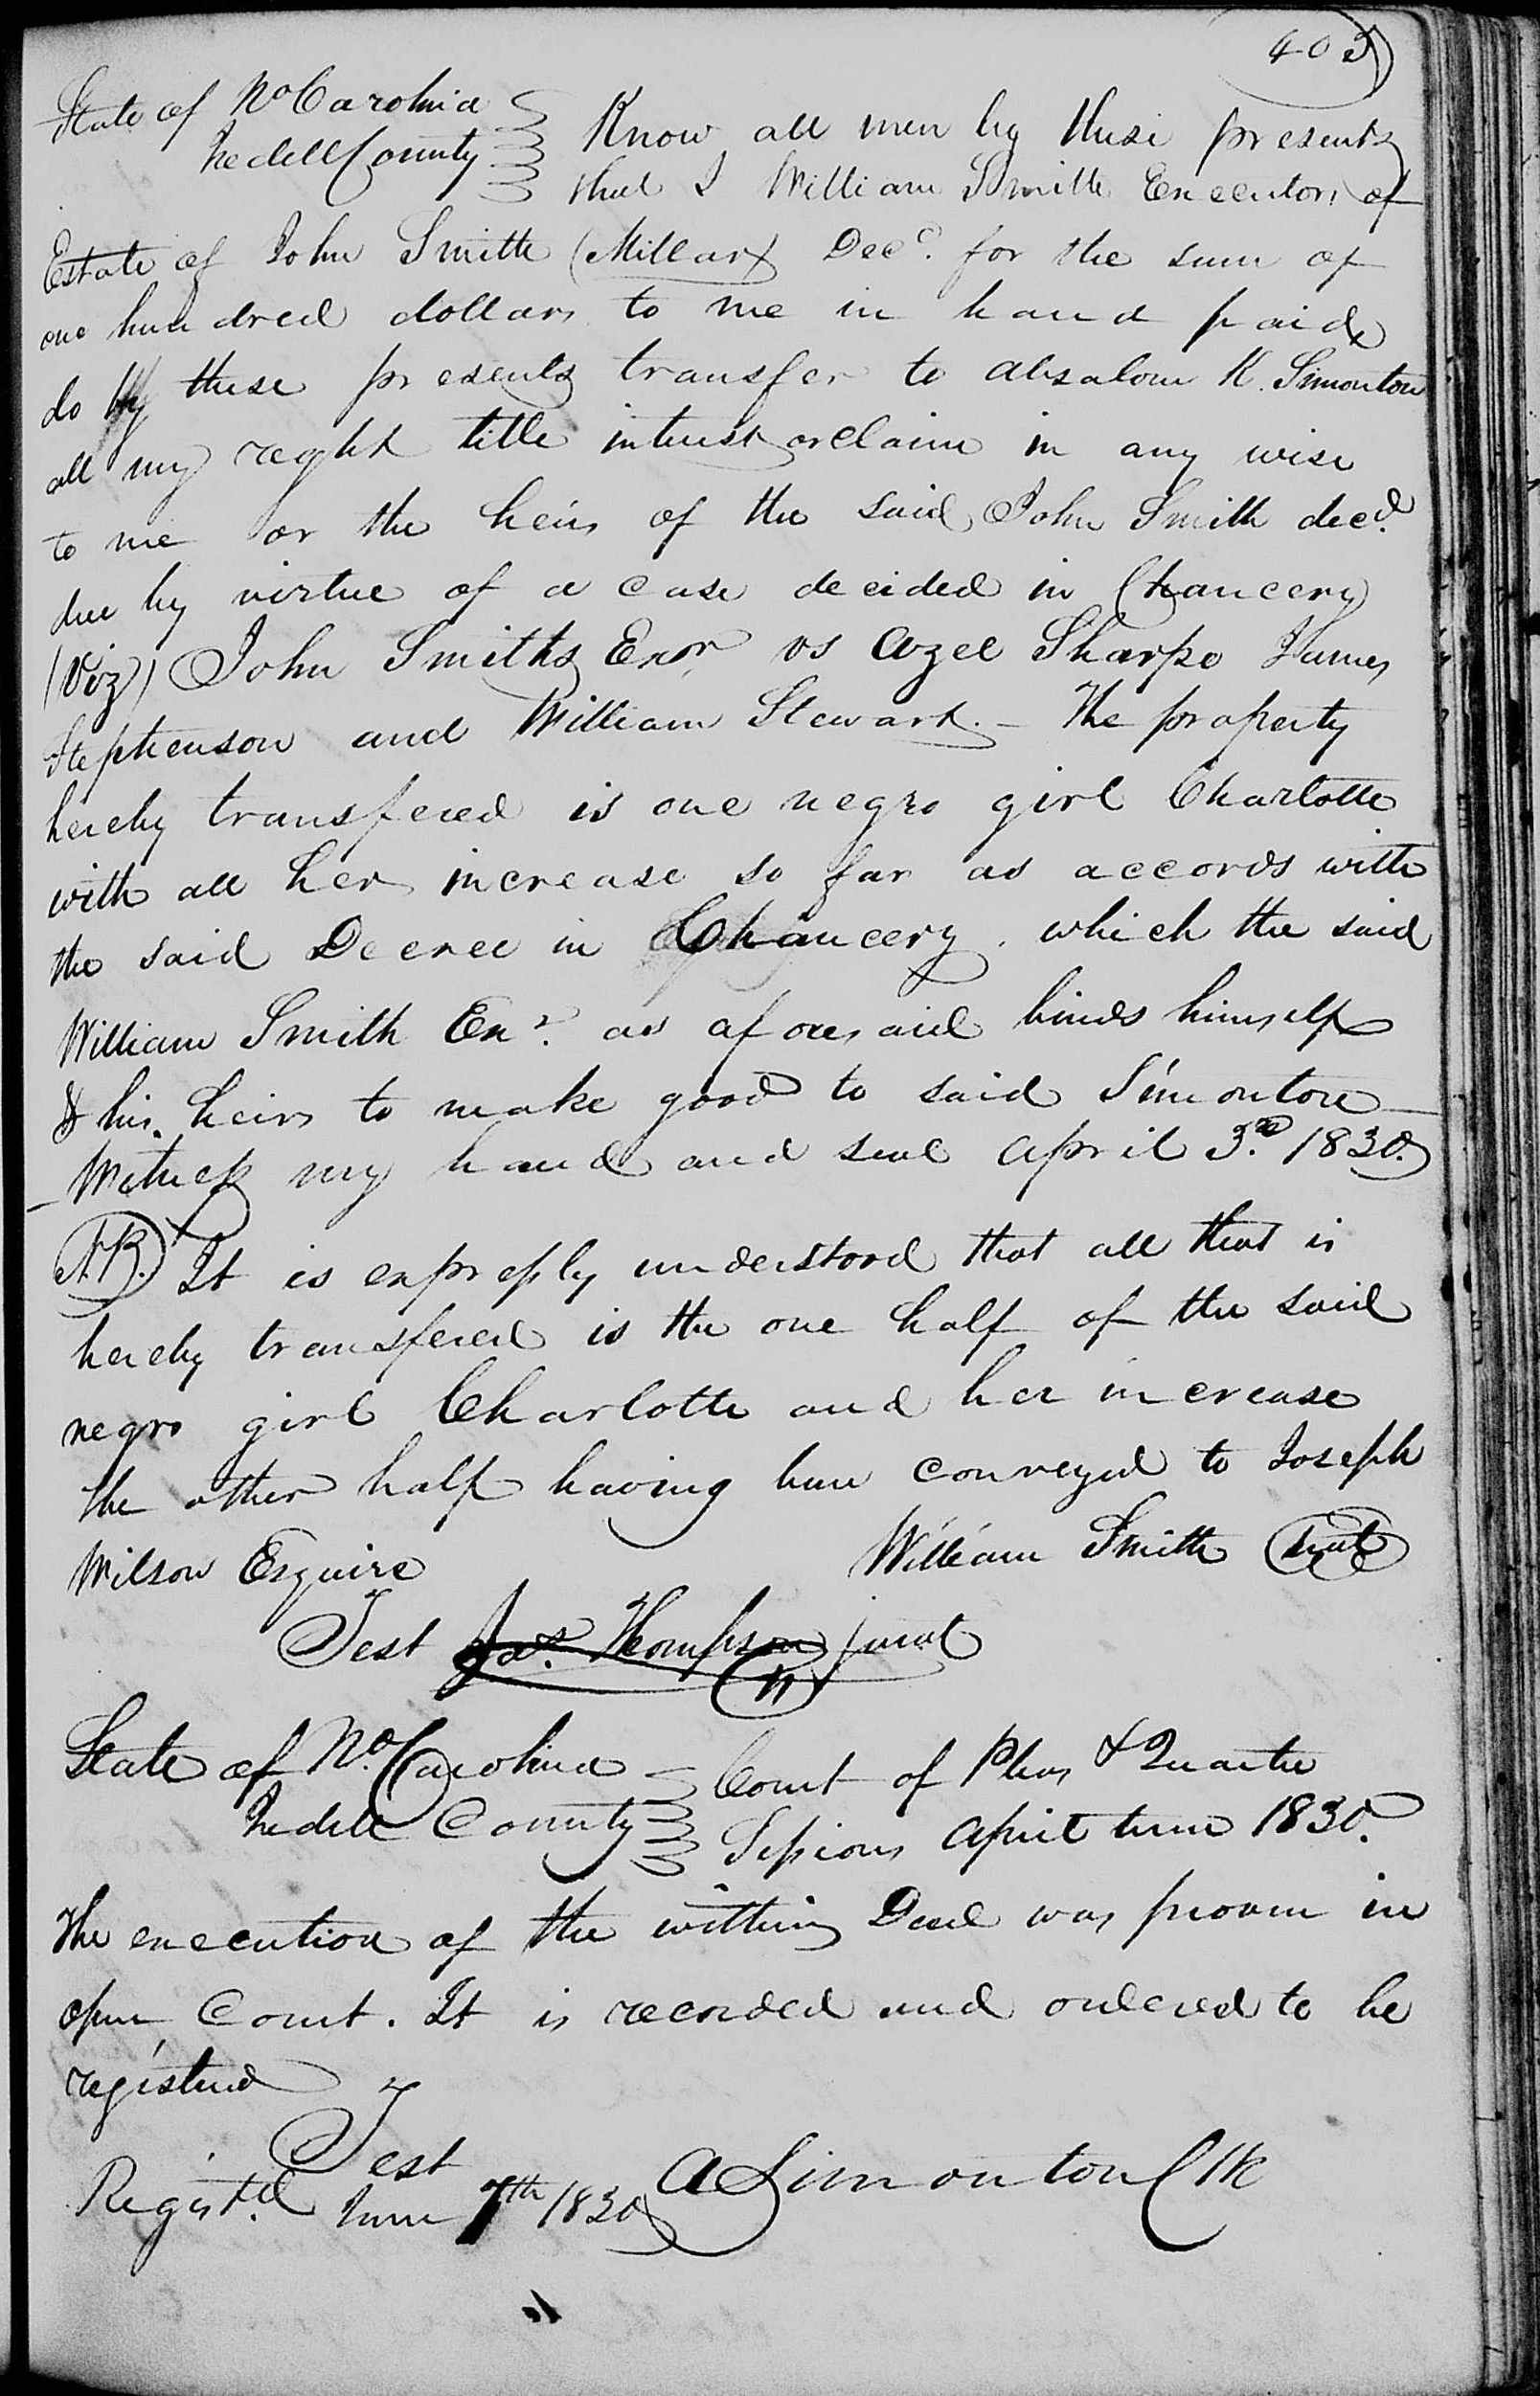 403
State of No Carolina
Iredell County } Know all men by these presents
that I William Smith Executor of
Estate of John Smith (Millar) Decd. for the sum of
one hundred dollars to me in hand paid
do by these presents transfer to Absalom K. Simonton
all my reght title interest or claim in any wise
to me or the heirs of the said John Smith decd.
due by virtue of a case decided in Chancery
(Viz) John Smiths Exor vs Azel Sharpe James
Stephenson and William Stewart. - The property
hereby transfered is one negro girl Charlotte
with all her increase so far as accords with
the said Decree in Chancery. which the said
William Smith Exr. as aforesaid binds himself
& his heirs to make good to said Simonton
Witness my hand and seal April 3.d 1830.
N.B. It is expressly understood that all that is
hereby transfered is the one half of the said
negro girl Charlotte and her increase
the other half having been conveyed to Joseph
Wilson Esquire
William Smith (Seal)
Test Jas. Thompson Jurat
State of No. Carolina
Iredell County } Court of Pleas & Quarter
Sessions April term 1830.
The execution of the within Deed was proven in
open Court. It is recorded and ordered to be
registered
Test
A Simonton Clk
Registd. June 7th 1830